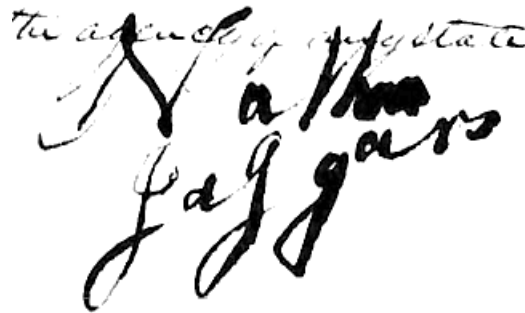 the agency of any state
Nathan
Jaggars